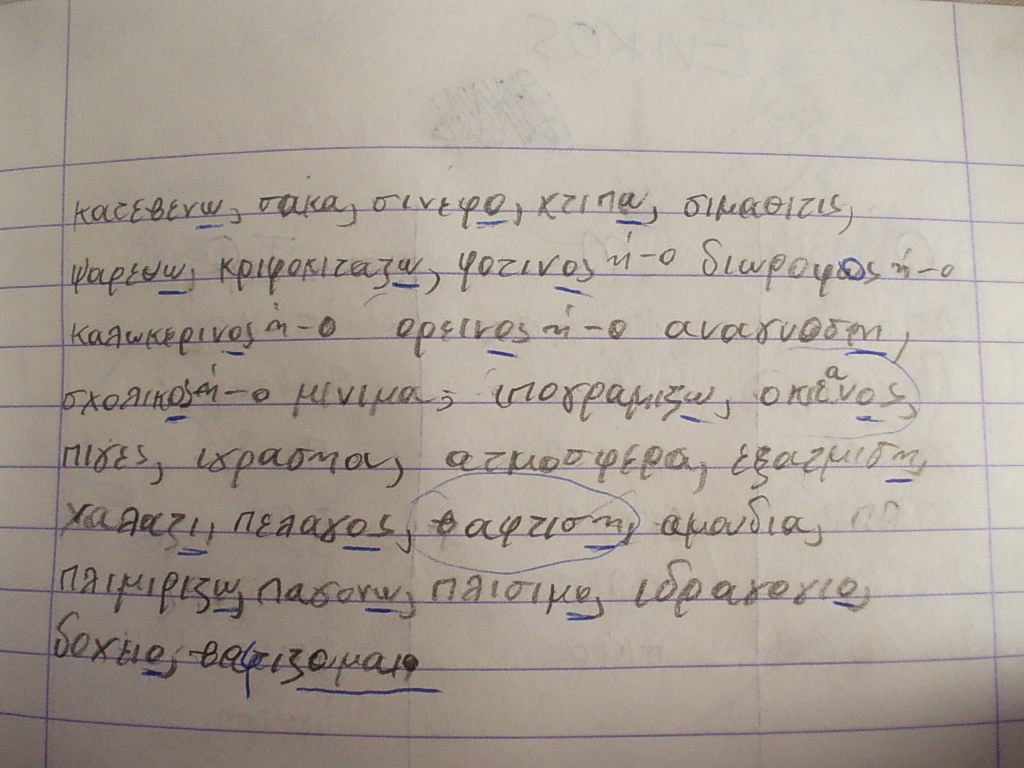 κατεβενω, σακα, σινεφο, χτιπα, σιμαθιτις,
ψαρευω, κριφοκιταζω, φοτινος ή-ο διωροφος ή-ο
καλωκερινος ή-ο ορεινος ή-ο αναγνοση,
σχολικος ή-ο μινιμα, ιπογραμιζω, οκεανος,
πιγες, ιγρασια, ατμοσφερα, εξατμιση,
χαλαζι, πελαγος, βαφτιση, αμουδια,
πλιμιριζω, παγονω, πλισιμο, ιδραγογιο,
δοχιο, βαφτιζομαι